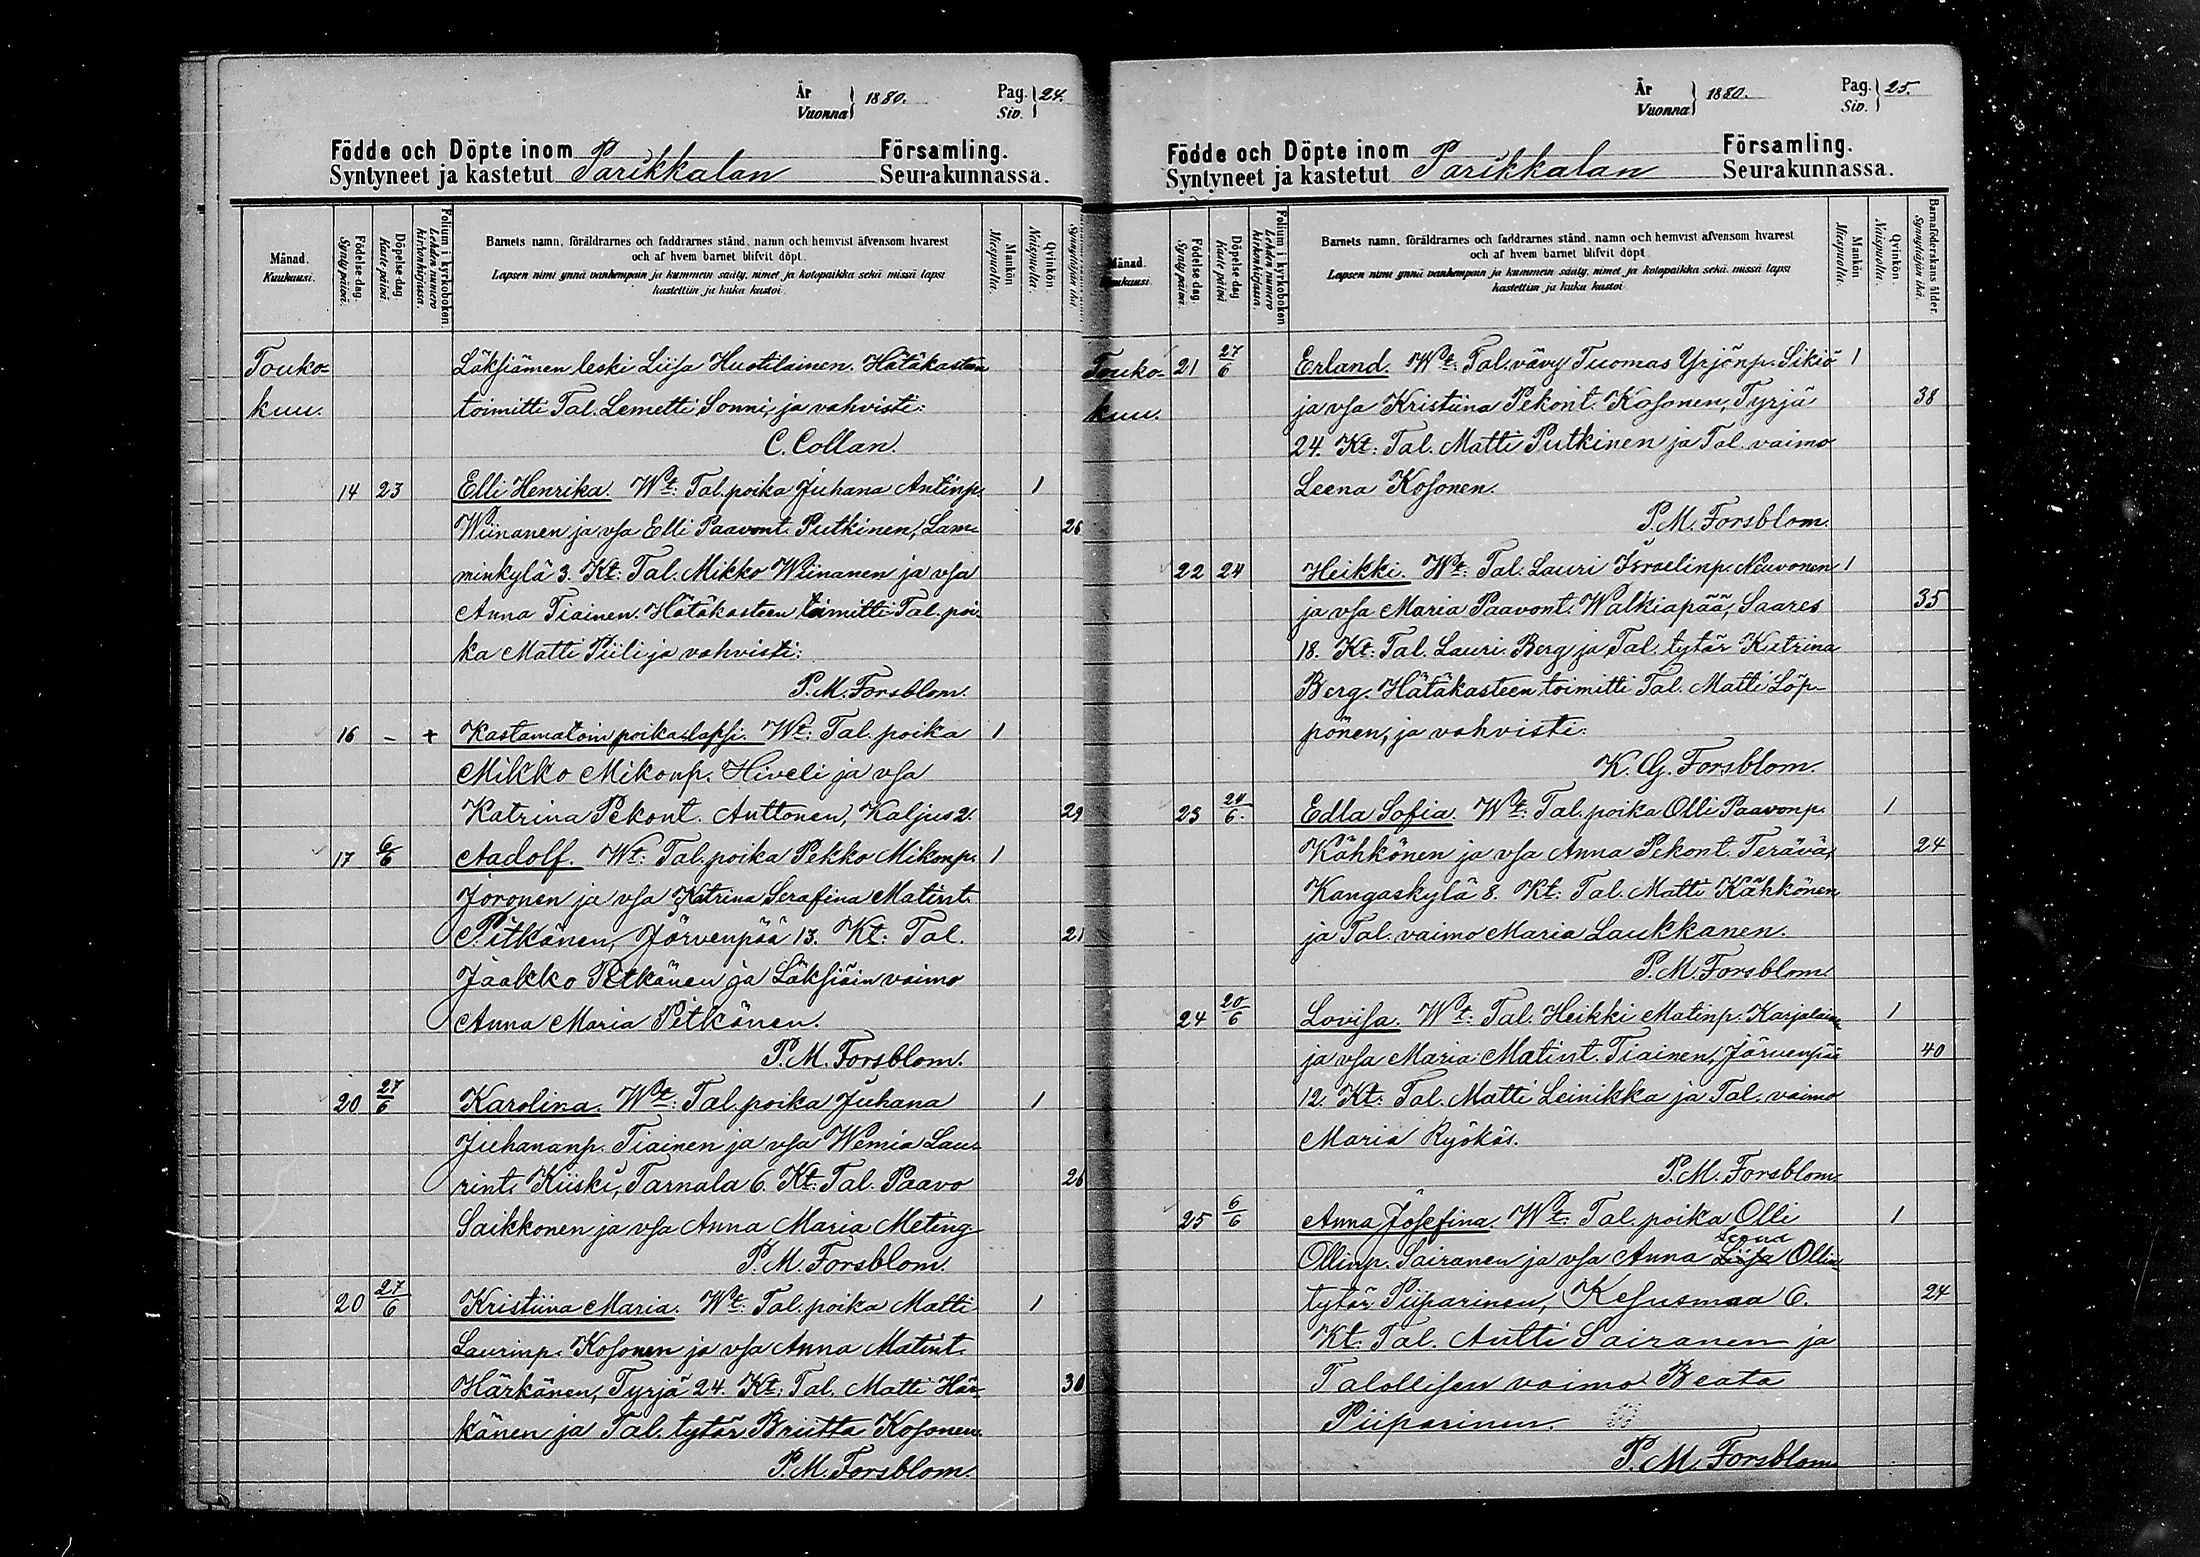 År
Vuonna } 1880.
Pag.
Siv. } 24.
Födde och Döpte inom Parikkalan Församling.
Syntyneet ja kastetut Seurakunnassa.
Månad.
Kuukausi.
Födelse dag.
Synty päivä.
Döpelse dag
Kaste päivä.
Folium i kyrkoboken
Lehden numero
kirkonkirjassa.
Barnets namn, föräldrarnes och faddrarnes stånd, namn och hemvist äfvensom hvarest
och af hvem barnet blifvit döpt.
Lapsen nimi ynnä vanhempain ja kummein sääty, nimet ja kotopaikka sekä missä lapsi
kastettiin ja kuka kastoi.
Mankön
Miespuolta.
Qvinkön.
Naispuolta.
Synnyttäjän ikä
Touko- Läksiämen leski Liisa Huotilainen. Hätäkasteen
kuu. toimitti Tal. Lemetti Sonni, ja vahvisti:
C. Collan.
14 23 Elli Henrika. Wt: Tal. poika Juhana Antinp. 1
Wiinanen ja vsa Elli Paavont. Putkinen, Lam- 26
minkylä 3. Kt: Tal. Mikko Wiinanen ja vsa
Anna Tiainen. Hätäkasteen toimitti Tal. poi-
ka Matti Piili ja vahvisti:
P. M. Forsblom.
16 – + Kastamatoin poikaslapsi. Wt: Tal. poika 1
Mikko Mikonp. Hiveli ja vsa
Katrina Pekont. Auttonen, Kaljus 2. 29
17 6/6 Aadolf. Wt: Tal. poika Pekko Mikonp. 1
Joronen ja vsa Katrina Serafina Matint.
Pitkänen, Järvenpää 13. Kt: Tal. 21
Jaakko Pitkänen ja Läksiäin vaimo
Anna Maria Pitkänen.
P. M. Forsblom.
20 27/6 Karolina. Wt: Tal. poika Juhana 1
Juhananp. Tiainen ja vsa Wemia Lau-
rint. Kiiski, Tarnala 6. Kt: Tal. Paavo 26
Saikkonen ja vsa Anna Maria Meting
P. M. Forsblom.
20 27/6 Kristiina Maria. Wt: Tal. poika Matti 1
Laurinp. Kosonen ja vsa Anna Matint.
Härkänen, Tyrjä 24. Kt: Tal. Matti Här- 30
känen ja Tal. tytär Briitta Kosonen.
P. M. Forsblom.
År
Vuonna } 1880.
Pag.
Siv. } 25.
Födde och Döpte inom Parikkalan Församling.
Syntyneet ja kastetut Seurakunnassa.
Månad.
Kuukausi.
Födelse dag.
Synty päivä.
Döpelse dag
Kaste päivä.
Folium i kyrkoboken
Lehden numero
kirkonkirjassa.
Barnets namn, föräldrarnes och faddrarnes stånd, namn och hemvist äfvensom hvarest
och af hvem barnet blifvit döpt.
Lapsen nimi ynnä vanhempain ja kummein sääty, nimet ja kotopaikka sekä missä lapsi
kastettiin ja kuka kastoi.
Mankön
Miespuolta.
Qvinkön.
Naispuolta.
Barnaföderskans ålder.
Synnyttäjän ikä.
Touko- 21 27/6 Erland. Wt: Tal. vävy Tuomas Yrjönp. Sikiö 1
kuu. ja vsa Kristiina Pekont. Kosonen, Tyrjä 38
24. Kt: Tal. Matti Putkinen ja Tal. vaimo
Leena Kosonen.
P. M. Forsblom.
22 24 Heikki. Wt: Tal. Lauri Israelinp. Neuvonen 1
ja vsa Maria Paavont. Walkiapää, Saares 35
18. Kt: Tal. Lauri Berg ja Tal. tytär Katrina
Berg. Hätäkasteen toimitti Tal. Matti Löp-
pönen, ja vahvisti:
K. G. Forsblom.
23 24/6. Edla Sofia. Wt: Tal. poika Olli Paavonp. 1
Kähkönen ja vsa Anna Pekont. Terävä, 24
Kangaskylä 8. Kt: Tal. Matti Kähkönen
ja Tal. vaimo Maria Laukkanen.
P. M. Forsblom.
24 20/6 Lovisa. Wt: Tal. Heikki Matinp. Karjalaine 1
ja vsa Maria Matint. Tiainen, Järvenpää 40
12. Kt: Tal. Matti Leinikka ja Tal. vaimo
Maria Ryökäs.
P. M. Forsblom.
25 6/6 Anna Josefina. Wt: Tal. poika Olli 1
Leena
Ollinp. Sairanen ja vsa Anna Liisa Ollin
tytär Piiparinen, Kesusmaa 6. 24
Kt: Tal. Antti Sairanen ja
Talollisen vaimo Beata
Piiparinen.
P. M. Forsblom.